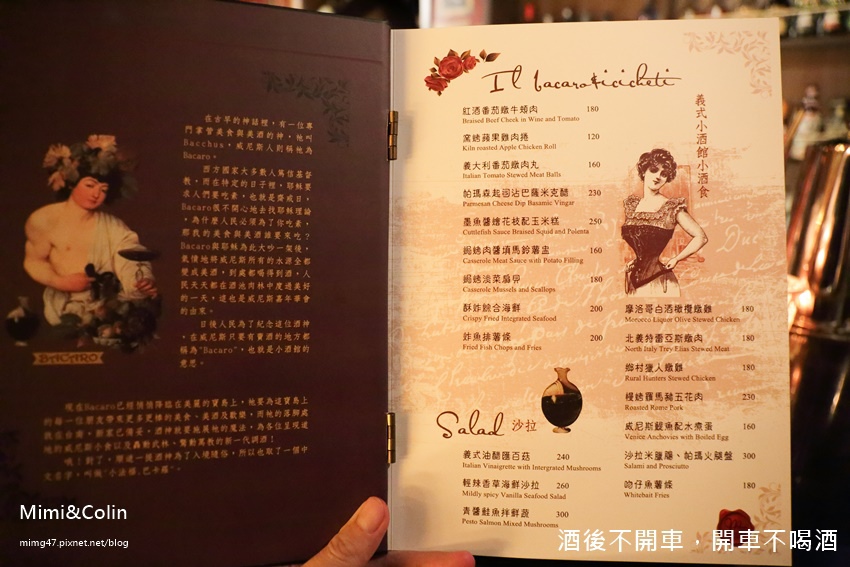 在古早的神話裡，有一位專
門掌管美食與美酒的神，祂叫
Bacchus，威尼斯人則稱祂為
Bacaro。
西方國家大多數人篤信基督
教，而在特定的日子裡，耶穌要
求人們要吃素，也就是齋戒日，
Bacaro很不開心地去找耶穌理論
，為什麼人民必須為了你吃素，
那我的美食與美酒誰要來吃？
Bacaro與耶穌為此大吵一架後，
氣憤地將威尼斯所有的水源全都
變成美酒，到處都喝得到酒，人
民天天都在酒池肉林中度過美好
的一天，這也是威尼斯嘉年華會
的由來。
日後人民為了紀念這位酒神
，在威尼斯只要有賣酒的地方都
稱為"Bacaro"，也就是小酒館的
意思。
BACARO
Il bacaro&icicheti
義式小酒館小酒食
紅酒番茄燉牛頰肉 180
Braised Beef Cheek in Wine and Tomato
窯烤蘋果雞肉捲 120
Kiln roasted Apple Chicken Roll
義大利番茄燉肉丸 160
Italian Tomato Stewed Meat Balls
帕瑪森起司沾巴薩米克醋 230
Parmesan Cheese Dip Basamic Vingar
墨魚醬繪花枝配玉米糕 250
Cuttlefish Sauce Braised Squid and Polenta
焗烤肉醬填馬鈴薯盅 160
Casserole Meat Sauce with Potato Filling
焗烤淡菜扇貝 180
Casserole Mussels and Scallops
酥炸綜合海鮮 200
Crispy Fried Integrated Seafood
炸魚排薯條 200
Fried Fish Chops and Fries
摩洛哥白酒橄欖燉雞 180
Morocco Liquor Olive Stewed Chicken
北義特雷亞斯燉肉 180
North Italy Trey Elias Stewed Meat
鄉村獵人燉雞 180
Rural Hunters Stewed Chicken
慢烤羅馬豬五花肉 230
Roasted Rome Pork
威尼斯鯷魚配水煮蛋 160
Venice Anchovies with Boiled Egg
沙拉米臘腸、帕瑪火腿盤 300
Salami and Prosciutto
吻仔魚薯條 180
Whitebait Fries
Salad 沙拉
義式油醋匯百菇 240
Italian Vinaigrette with Intergrated Mushrooms
輕辣香草海鮮沙拉 260
Mildly spicy Vanilla Seafood Salad
青醬鮭魚拌鮮蔬 300
Pesto Salmon Mixed Mushrooms
Mimi&Colin
mimg47.pixnet.net/blog
酒後不開車，開車不喝酒